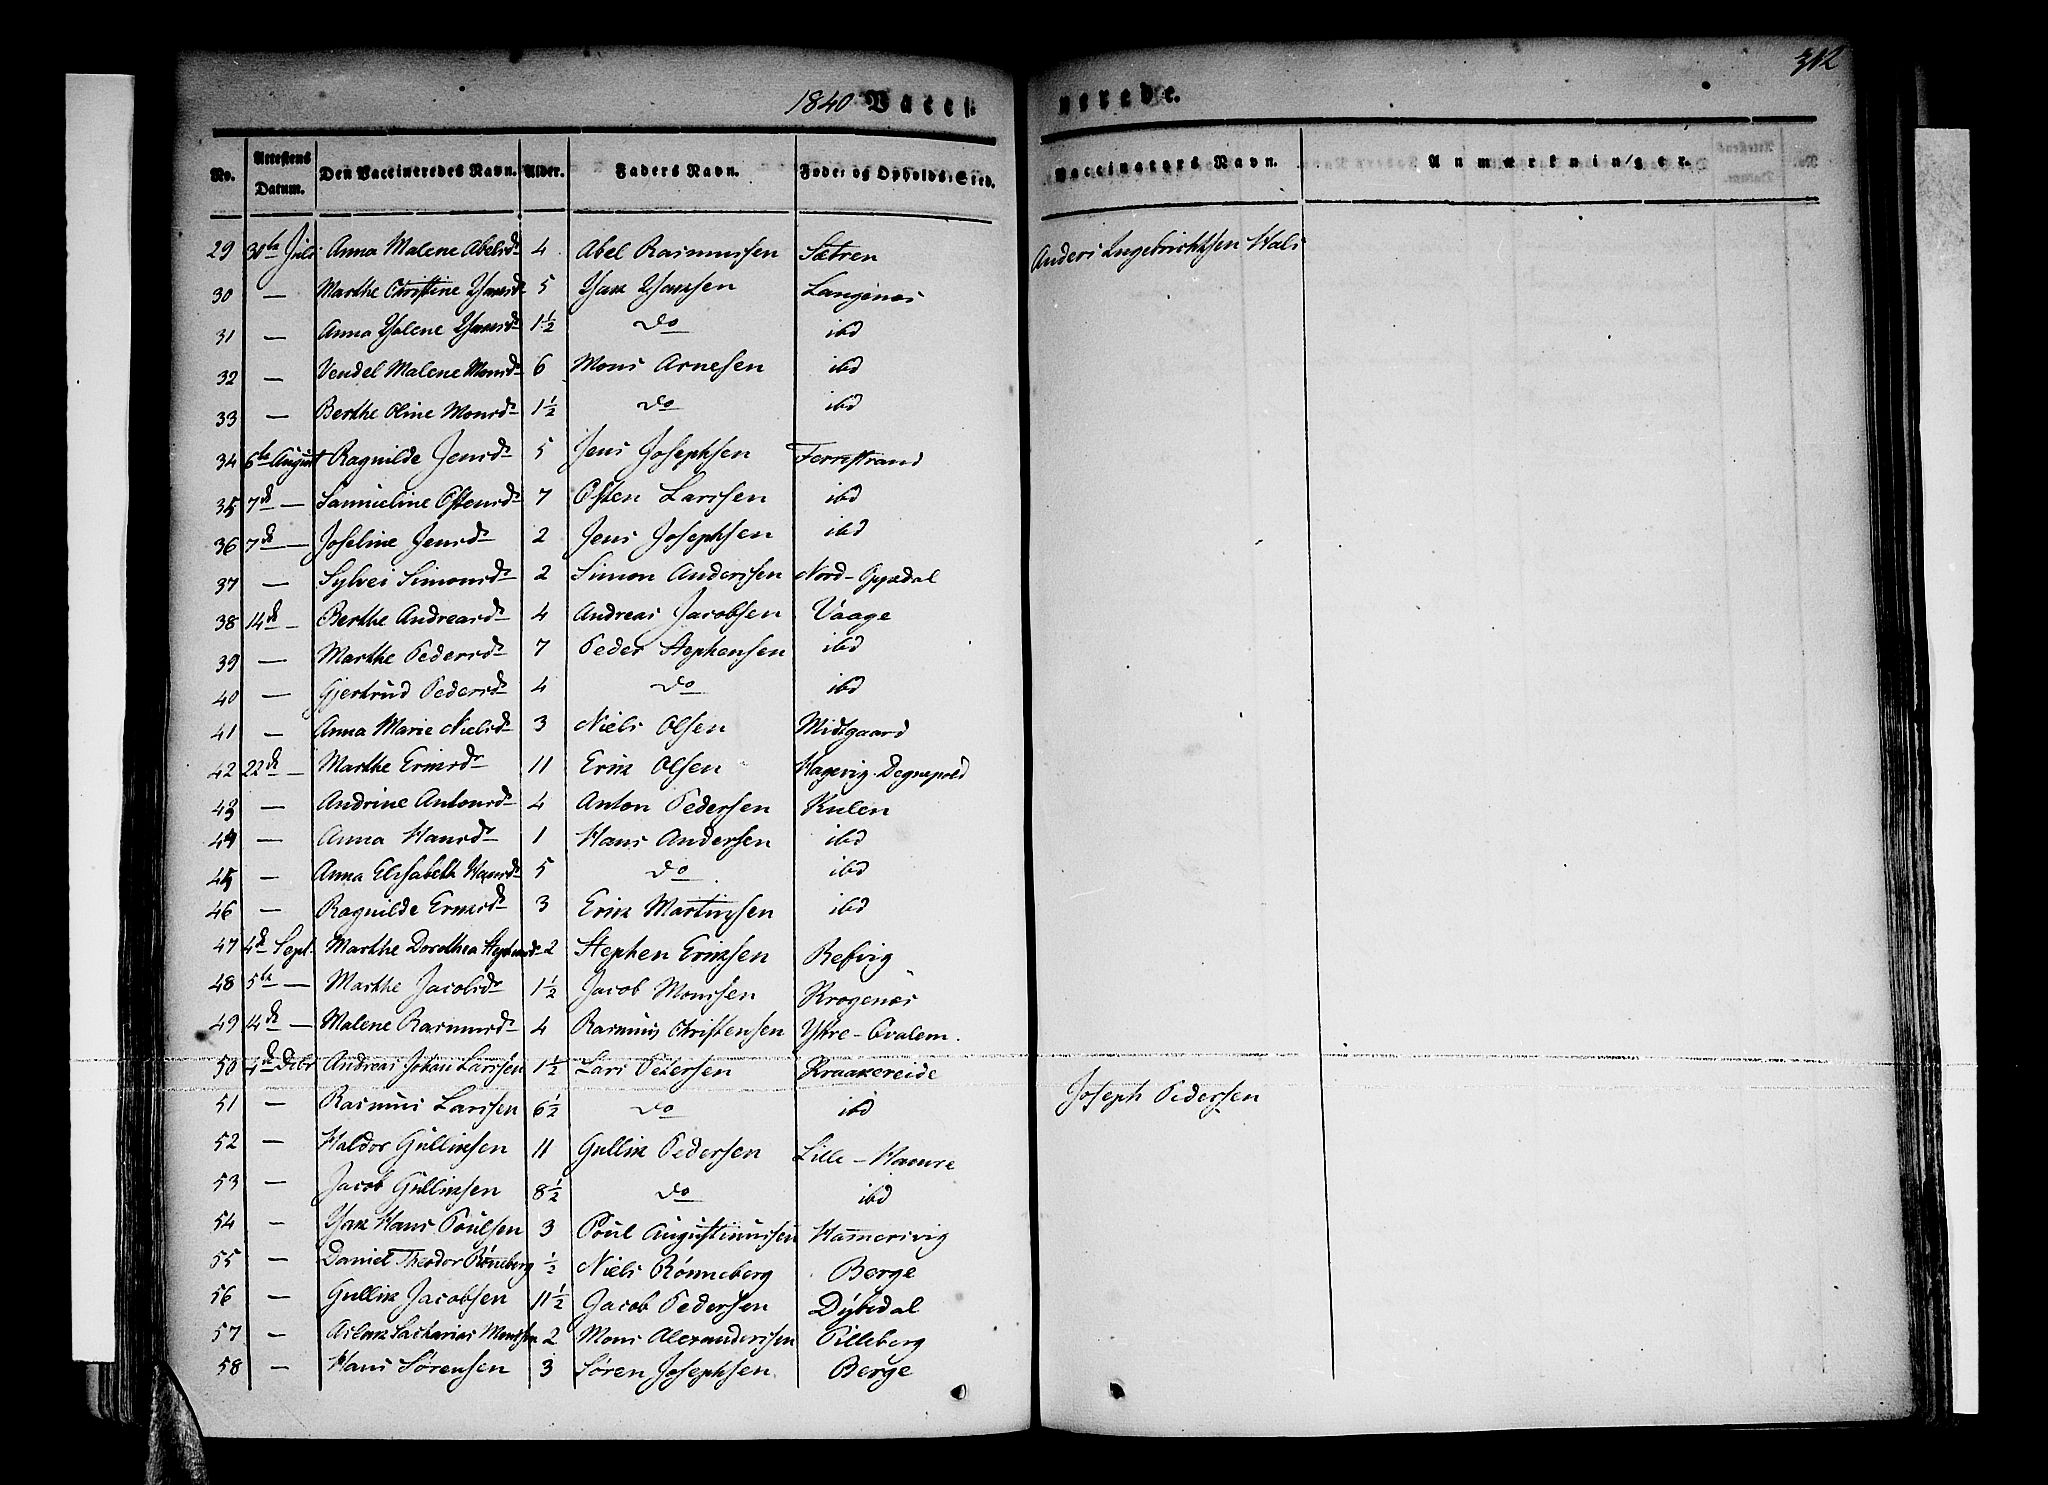 312
1840 Vacci- nerede.
No. Attestens Datum. Den Vaccineredes Navn. Alder. Faders Navn. Føde- og Opholds-Sted. Vaccinateurs Navn. Anmærkninger.
29 30te Juli Anna Malene Abelsdr 4 Abel Rasmussen Sætren Anders Ingebrichtsen Hals
30 — Marthe Christine Isaksdr 5 Isak Isaksen Langenæs
31 — Anna Malene Isaksdr 1½ do ibd
32 — Vendel Malene Monsdr 6 Mons Arnesen ibd
33 — Berthe Oline Monsdr 1½ do ibd
34 6te August Ragnilde Jensdr 5 Jens Josephsen Ferrestrand
35 7de — Samueline Ostensdr 7 Osten Larssen ibd
36 7de — Joseline Jensdr 2 Jens Josephsen ibd
37 — Sylvei Simonsdr 2 Simon Anderssen Nord-Oppedal
38 14de — Berthe Andreasdr 4 Andreas Jacobsen Vaage
39 — Marthe Pedersdr 7 Peder Stephensen ibd
40 — Gjertrud Pedersdr 4 do ibd
41 — Anna Marie Nielsdr 3 Niels Olsen Midtgaard
42 22de — Marthe Eriksdr 11 Erik Olsen Hagevig-Degnepold
43 — Andrine Antonsdr 4 Anton Pedersen Kulen
44 — Anna Hansdr 1 Hans Andersen ibd
45 — Anna Elisabeth Hansdr 5 do ibd
46 — Ragnilde Eriksdr 3 Erik Martinsen ibd
47 4de Sept. Marthe Dorothea Stephensdr 2 Stephen Eriksen Refvig
48 5te — Marthe Jacobsdr 1½ Jacob Monsen Krogenæs
49 14de — Malene Rasmusdr 4 Rasmus Christensen Ytre-Qvalem.
50 4de Debr Andreas Johan Larssen 1½ Lars Petersen Kraakereide
51 — Rasmus Larssen 6½ do ibd Joseph Pedersen
52 — Haldor Gulliksen 11 Gullik Pedersen Lille-Hamre
53 — Jacob Gulliksen 8½ do ibd
54 — Isak Hans Poulsen 3 Poul Augustinussen Hamersvig
55 — Daniel Theodor Rønneberg ½ Niels Rønneberg Berge
56 — Gullik Jacobsen 11½ Jacob Pedersen Dybedal
57 — Aslak Sacharias Monssen 2 Mons Alexanderssen Pilleberg
58 — Hans Sørensen 3 Søren Josephsen Berge